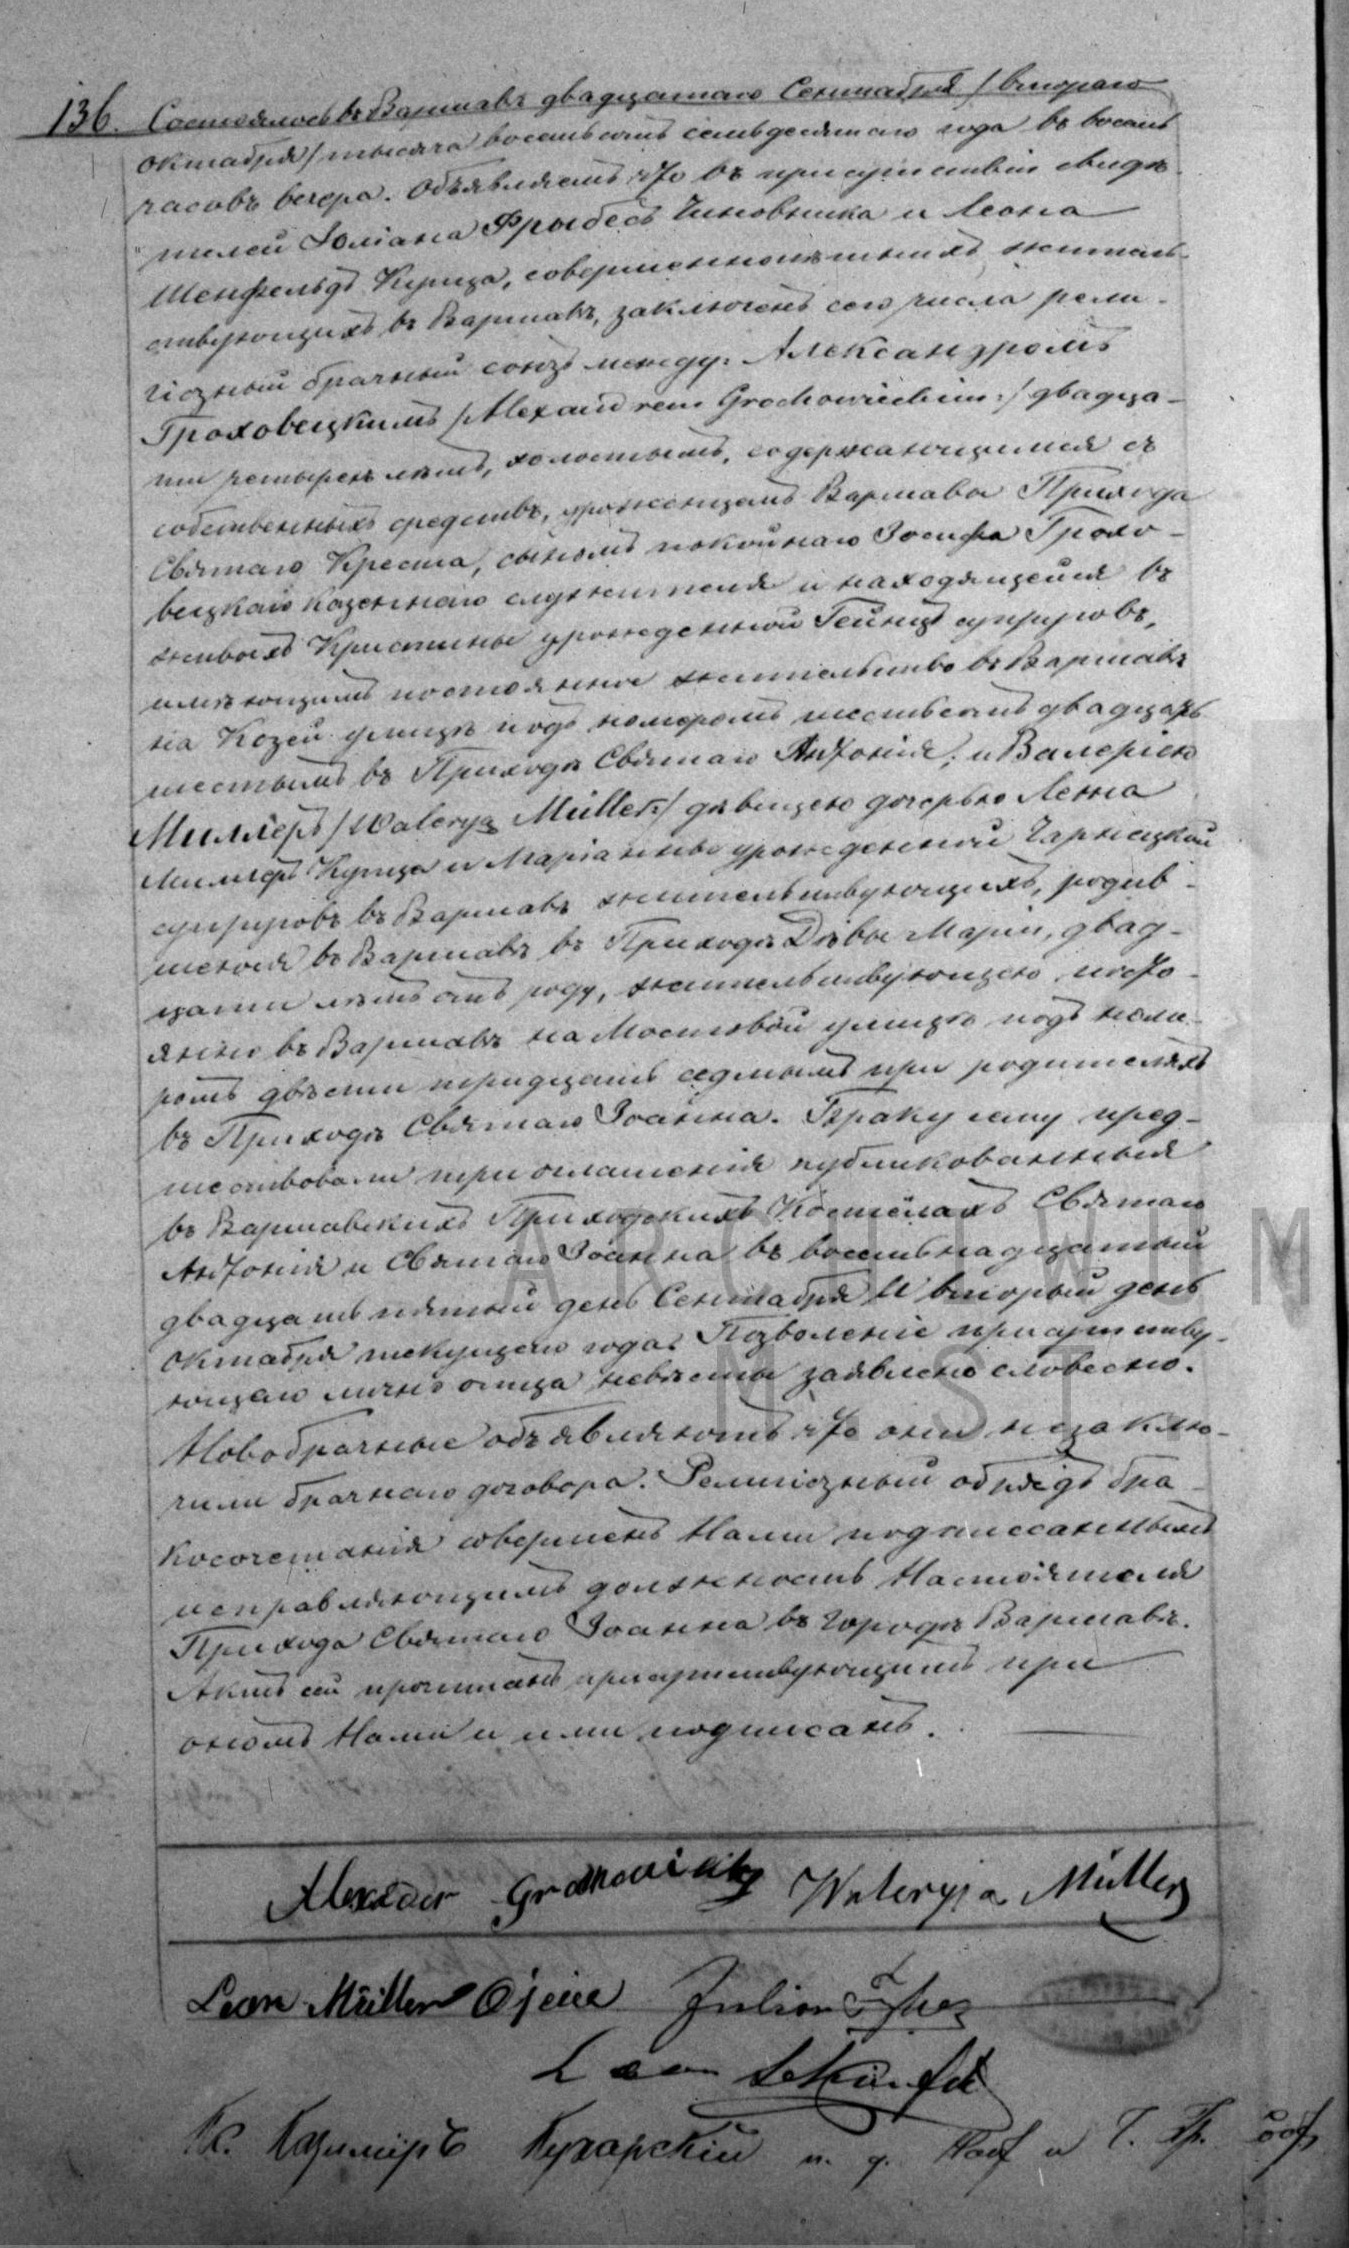 136. Состоялось въ Варшавѣ двадцатаго Сентября /втораго
Октября/ тысяча восемьсотъ семьдесятаго года въ восемь
часовъ вечера. Объявляемъ что въ присутствіи свидѣ-
телей Юліана Чиновника и Леона
Шенфельдъ Купца, совершеннолѣтнихъ житель-
ствующихъ въ Варшавѣ, заключенъ сего числа рели-
гіозный брачный союзъ между: Александромъ
Гроховецкимъ /Alexandrem Grochowieckim:/ двадца-
ти четырехъ лѣтъ, холостымъ, содержающимся съ
собственныхъ средствъ, урожденцемъ Варшавы Прихода
Святаго Креста, сыномъ покойнаго Іосифа Грохо-
вецкаго казеннаго служителя и находящейся въ
живыхъ Кристины урожденной Гейнцъ супруговъ,
имѣющимъ постоянное жительство въ Варшавѣ
на Козей улицѣ подъ номеромъ шестьсотъ двадцать
шестымъ въ Приходѣ Святаго Антонія; и Валерією
Миллеръ /Waleryą Müller:/ дѣвицею дочерью Леона
Миллеръ Купца и Маріанны урожденной Чарнецкой
супруговъ въ Варшавѣ жительствующихъ, родив-
шеюся въ Варшавѣ въ Приходѣ Дѣвы Маріи, двад-
цати лѣтъ отъ роду, жительствующею посто-
янно въ Варшавѣ на Мостовой улицѣ подъ номе-
ромъ двѣсти тридцать седмымъ при родителяхъ
въ Приходѣ Святаго Іоанна. Браку сему пред-
шествовали три оглашенія публикованныя
въ Варшавскихъ Приходскихъ Костёлахъ Святаго
Антонія и Святаго Іоанна въ восемьнадцатый
двадцать пятый день Сентября и вторый день
Октября текущего года. Позволеніе присутству-
ющаго лично отца невѣсты заявлено словесно.
Новобрачные объявляютъ что они незаклю-
чили брачнаго договора. Религіозный обрядъ бра-
косочетанія совершенъ Нами подписаннымъ
исправляющимъ должность Настоятеля
Прихода Святаго Іоанна въ городѣ Варшавѣ.
Актъ сей прочитанъ присутствующимъ при
ономъ Нами и ими подписанъ.
Alexander Grochowiecki Waleryja Müller
Leon Müller Ojciec Julian
Leon Schönfeld
Кс. Казиміръ Кухарскій и. д.
ARCHIWUM
M. ST